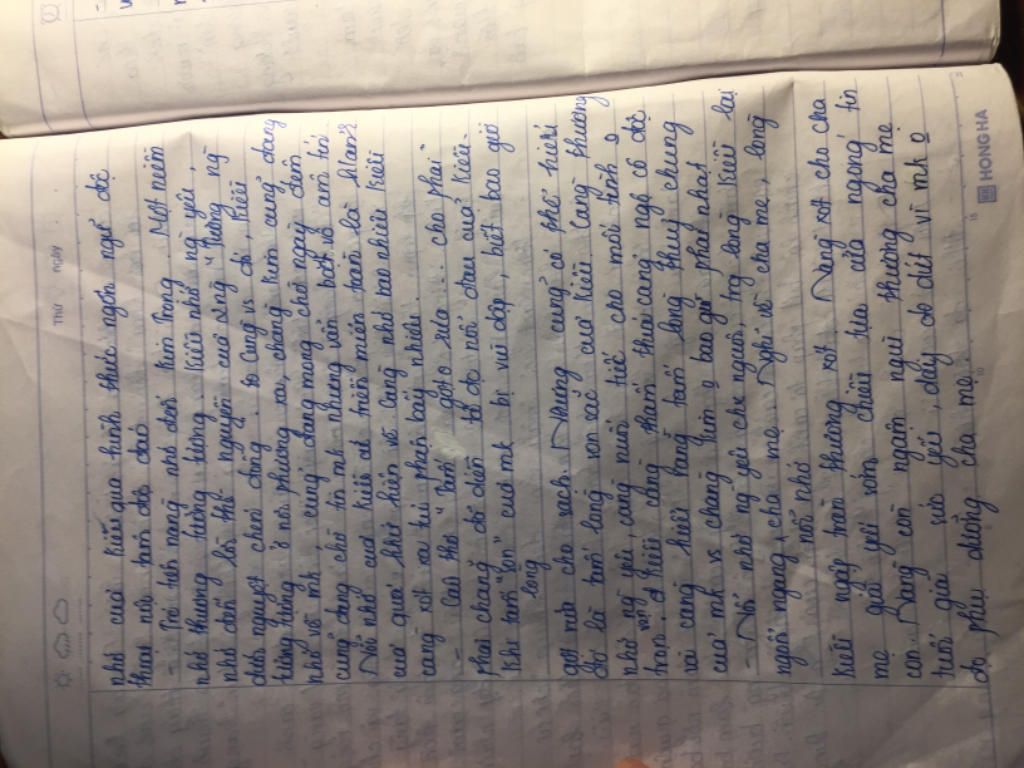 Thứ
ngày
nhớ của Kiều qua hình thức ngôn ngữ độc
thoại nội tâm độc đáo
- Trở tiên nàng nhớ đến Kim Trọng. Một niềm
nhớ thương tưởng không. Kiều nhớ ng yêu,
nhớ đến lời thề nguyền của ~ng "Tưởng ng
dưới nguyệt chén đồng". to Cùng vs đó, Kiều
tưởng tượng ở nơi phương xa, chàng Kim cũng đang
nhớ về mk, cũng đang mong chờ ngày đêm
cũng đang chờ tin mk nhưng vẫn bặt vô âm tín
Nỗi nhớ của Kiều đi triền miên toàn là
của quá khứ hiện về càng nhớ bao nhiêu Kiều
càng xót xa tủi phận bấy nhiêu.
- Câu thơ "Tấm son gột rửa... cho phai"
phải chăng đã diễn tả đc nỗi đau của Kiều
khi tấm "son" của mk bị vùi dập, biết bao giờ
gột rửa cho sạch. Nhưng cũng có thể hiểu
đó là tấm lòng son sắc của Kiều càng thương
nhớ ng yêu, càng nuối tiếc cho mối tình o
trọn vẹn Kiều càng thấm thía cảnh ngộ cô độc
và càng hiểu rằng tấm lòng thuỷ chung
của mk vs chàng Kim o bao giờ phai nhạt
- Nỗi nhớ ng yêu chưa nguôi, trg lòng Kiều lại
ngổn ngang nỗi nhớ cha mẹ. Nghĩ về cha mẹ, lòng
Kiều ngập tràn thương xót. Nàng xót cho cha
mẹ già yếu sớm chiều tựa cửa ngóng tin
con. Nàng còn ngậm ngùi thương cha mẹ
tuổi già sức yếu, day dứt vì mk o
đc phụng dưỡng cha mẹ.
HONG HA